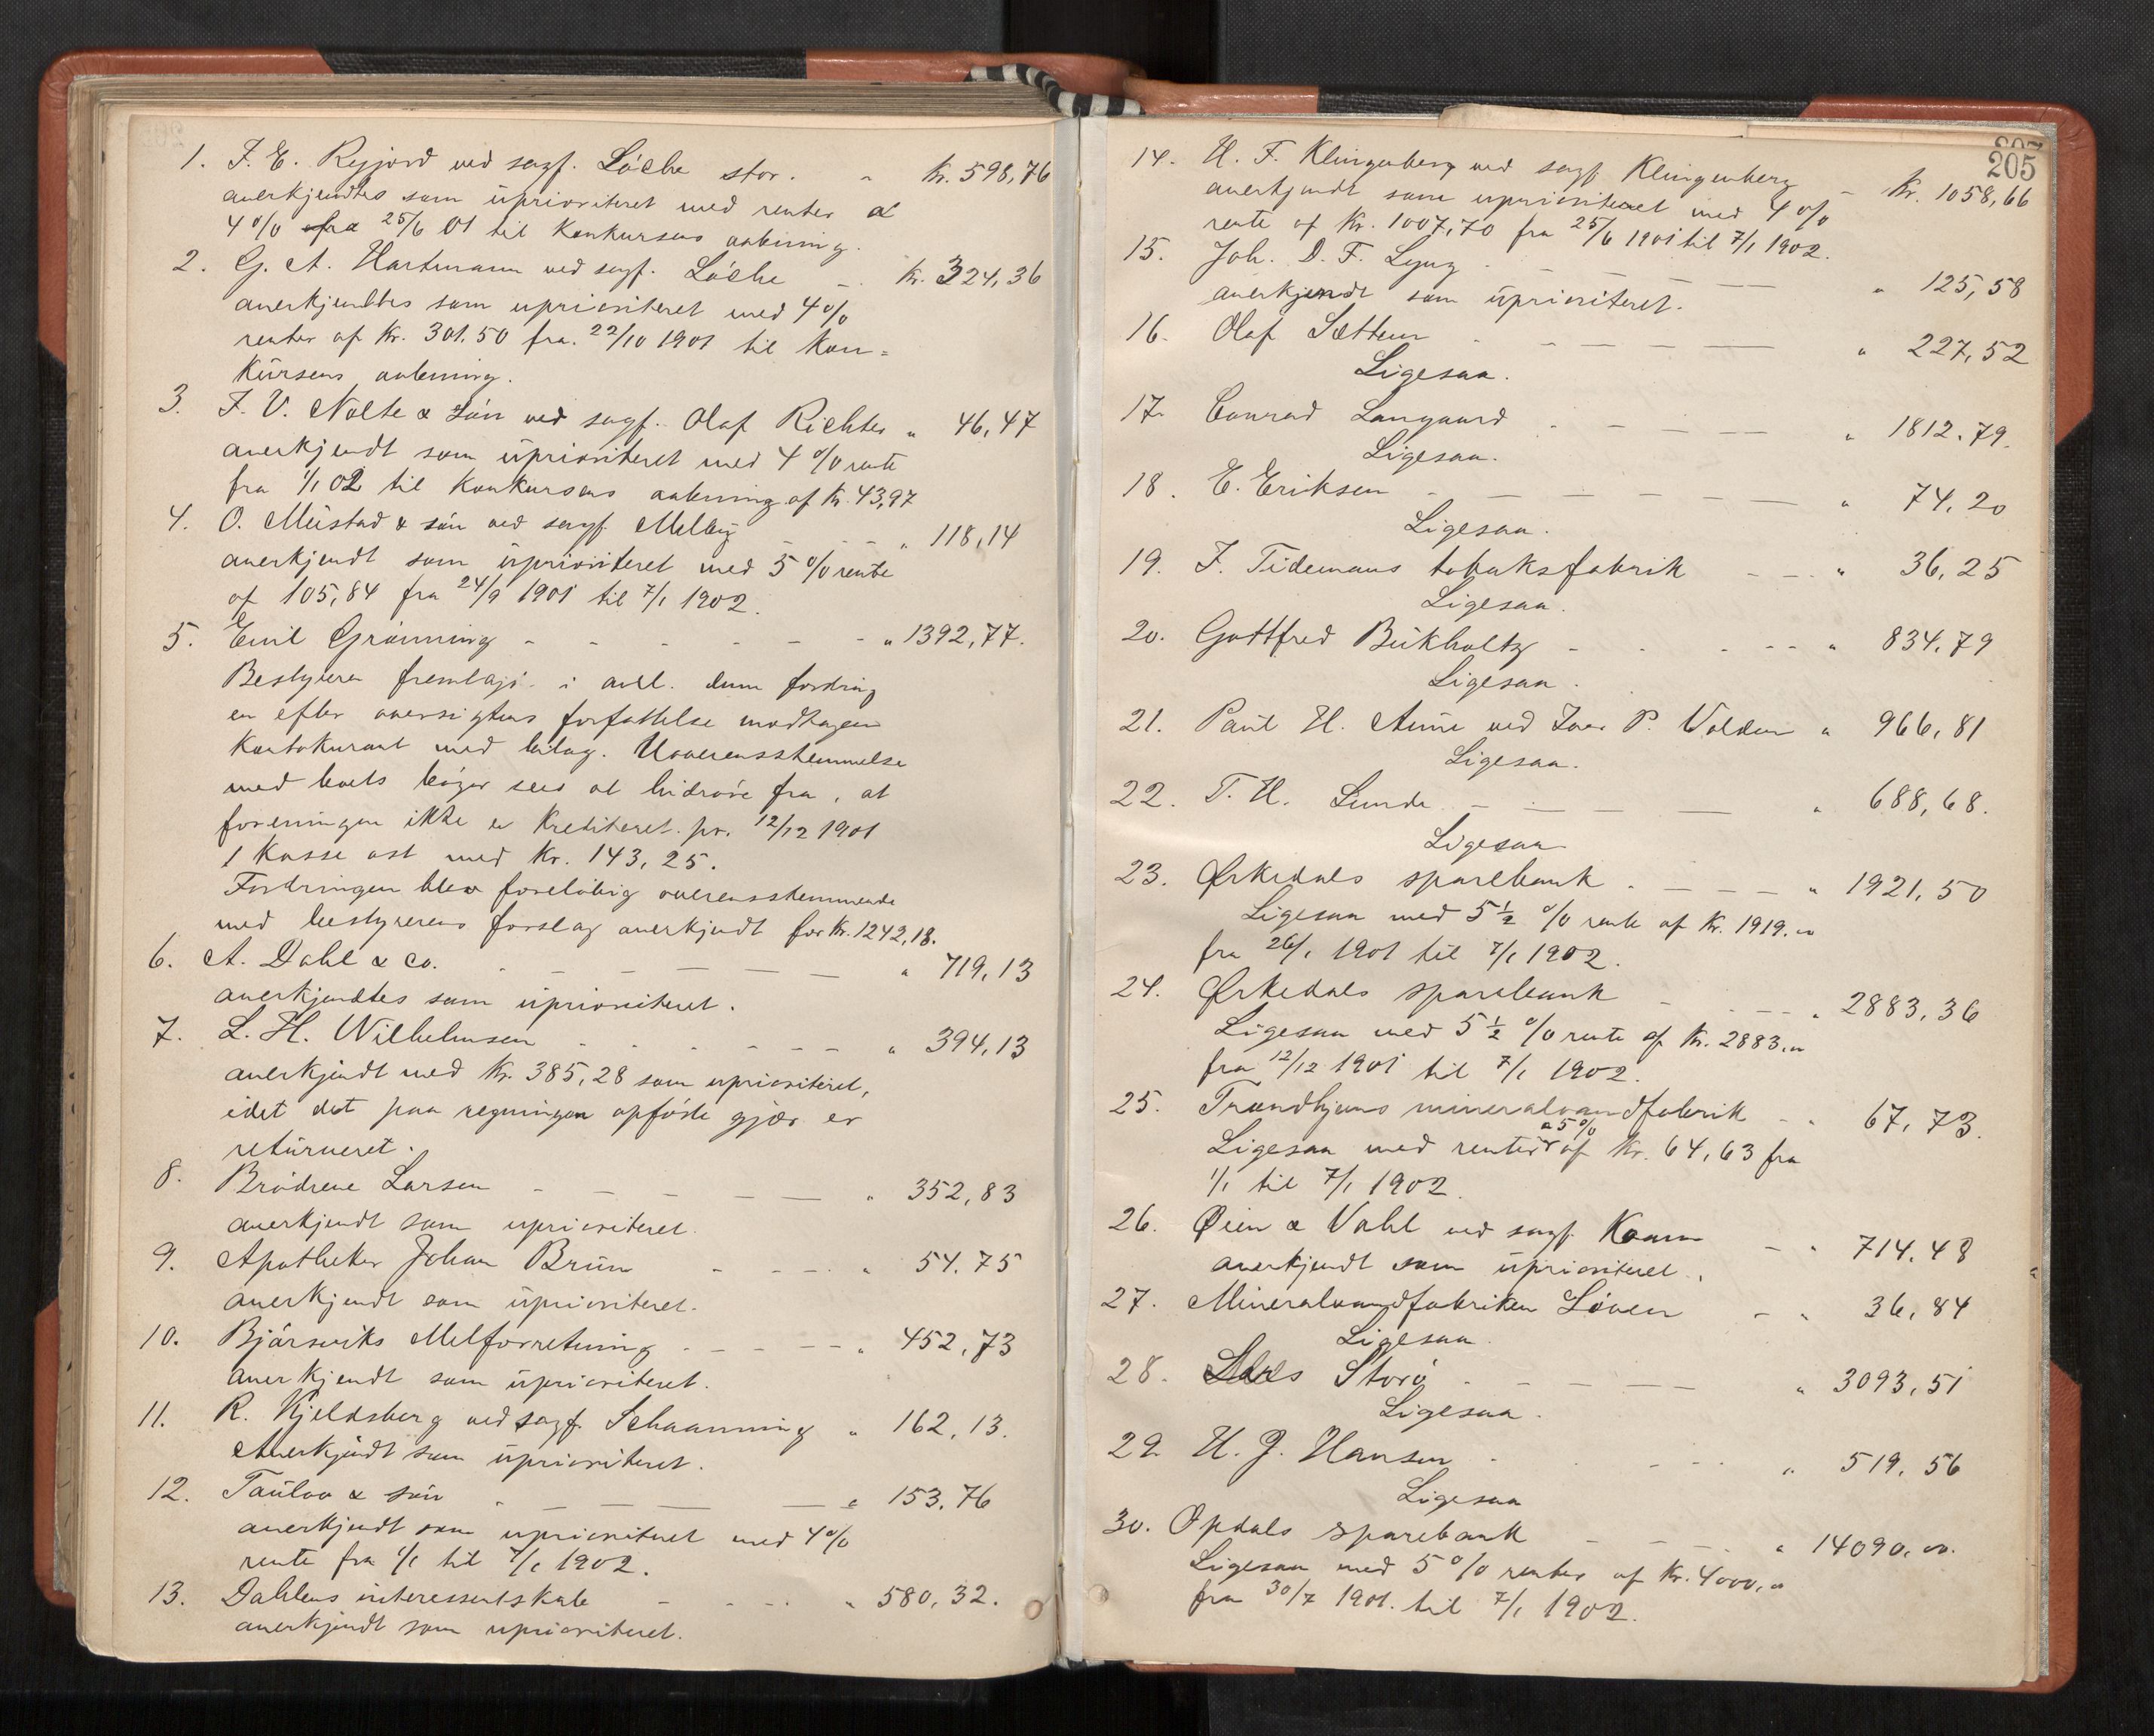 1. F. E. Rejjord ved sagf. Löche stor. „ Kr. 598,76
anerkjendtes som uprioriteret med renter a
4 % fra 25/6 01 til Konkursens aabning.
2. G. A. Hartmann ved sagf. Löche — . Kr. 324,36
anerkjendtes som uprioriteret med 4 %
renter af Kr. 301.50 fra 22/10 1901 til Kon=
kursens aabning.
3. F. V. Nolte & Sön ved sagf. Olaf Richter „ 46,47
anerkjendt som uprioriteret med 4 % rente
fra 1/1 02 til Konkursens aabning af Kr. 43,97
4. O. Mustad & sön ved sagf. Melbÿ - - „ 118,14
anerkjendt som uprioriteret med 5 % rente
af 105,84 fra 24/9 1901 til 7/1 1902.
5. Emil Grönning - - - - - - „ 1392,77.
Bestyreren fremlagde i anl. denne fordring
en efter oversigtens forfattelse modtagen
Kontokurant med bilag. Uoverensstemmelse
med boets böger sees at hidröre fra, at
foreningen ikke er Krediteret pr. 12/12 1901
1 Kasse ost med Kr. 143,25.
Fordringen blev forelöbig overensstemmende
med bestyrerens forslag anerkjendt for Kr. 1242,18.
6. A. Dahl & co. - — — — — „ 719,13
anerkjendtes som uprioriteret.
7. L. H. Wilhelmsen - - - - — — „ 394,13
anerkjendt med Kr. 385,28 som uprioriteret,
idet det paa regningen opförte gjær er
returneret.
8. Brödrene Larsen - — — — — „ 352,83
anerkjendt som uprioriteret.
9. Apotheker Johan Brun - - - - „ 54.75
anerkjendt som uprioriteret.
10. Björsviks Melforretning - - - - - „ 452,73
anerkjendt som uprioriteret.
11. R. Kjeldsberg ved sagf. Schaanning „ 162,13.
Anerkjendt som uprioriteret.
12. Taulow & sön - — — — — „ 153.76
anerkjendt som uprioriteret med 4 %
rente fra 1/1 til 7/1 1902.
13. Dahlens interessentskab - - - - „ 580,32.
anerkjendt som uprioriteret.
205
14. H. F. Klingenberg ved sagf. Klingenberg — Kr. 1058,66
anerkjendt som uprioriteret med 4 %
rente af Kr. 1007,70 fra 25/6 1901 til 7/1 1902.
15. Joh. D. F. Lyng - — — — — „ 125,58
anerkjendt som uprioriteret.
16. Olaf Settem - — — — — „ 227,52
Ligesaa.
17. Conrad Langaard - — — — — „ 1812.79.
Ligesaa.
18. E. Eriksen - — — — — — „ 74.20
Ligesaa.
19. J. Tidemans tobaksfabrik — - - „ 36,25
Ligesaa.
20. Gottfred Bukholtz - - - - - „ 834,79
Ligesaa.
21. Paul H. Aune ved Iver P. Volden „ 966,81
Ligesaa.
22. T. H. Lunde — — — — „ 688,68.
Ligesaa
23. Ørkedals sparebank - — — — „ 1921,50
Ligesaa med 5 ½ % rente af Kr. 1919.00
fra 26/1 1901 til 7/1 1902.
24. Ørkedals sparebank - - - - „ 2883,36
Ligesaa med 5 ½ % rente af Kr. 2883.00
fra 12/12 1901 til 7/1 1902.
25. Trondhjems mineralvandfabrik - „ 67,73.
Ligesaa med renter a 5 % af Kr. 64,63 fra
1/1 til 7/1 1902.
26. Øien & Vahl ved sagf. — „ 714.48
anerkjendt som uprioriteret.
27. Mineralvandfabriken Löven - „ 36,84
Ligesaa.
28. Lars Storö - — — — — „ 3093,51
Ligesaa.
29. H. J. Hansen - - - - - „ 519,56
Ligesaa
30. Opdals sparebank - - - - „ 14090.00.
Ligesaa med 5 % renter af Kr. 4000,00
fra 30/7 1901. til 7/1 1902.